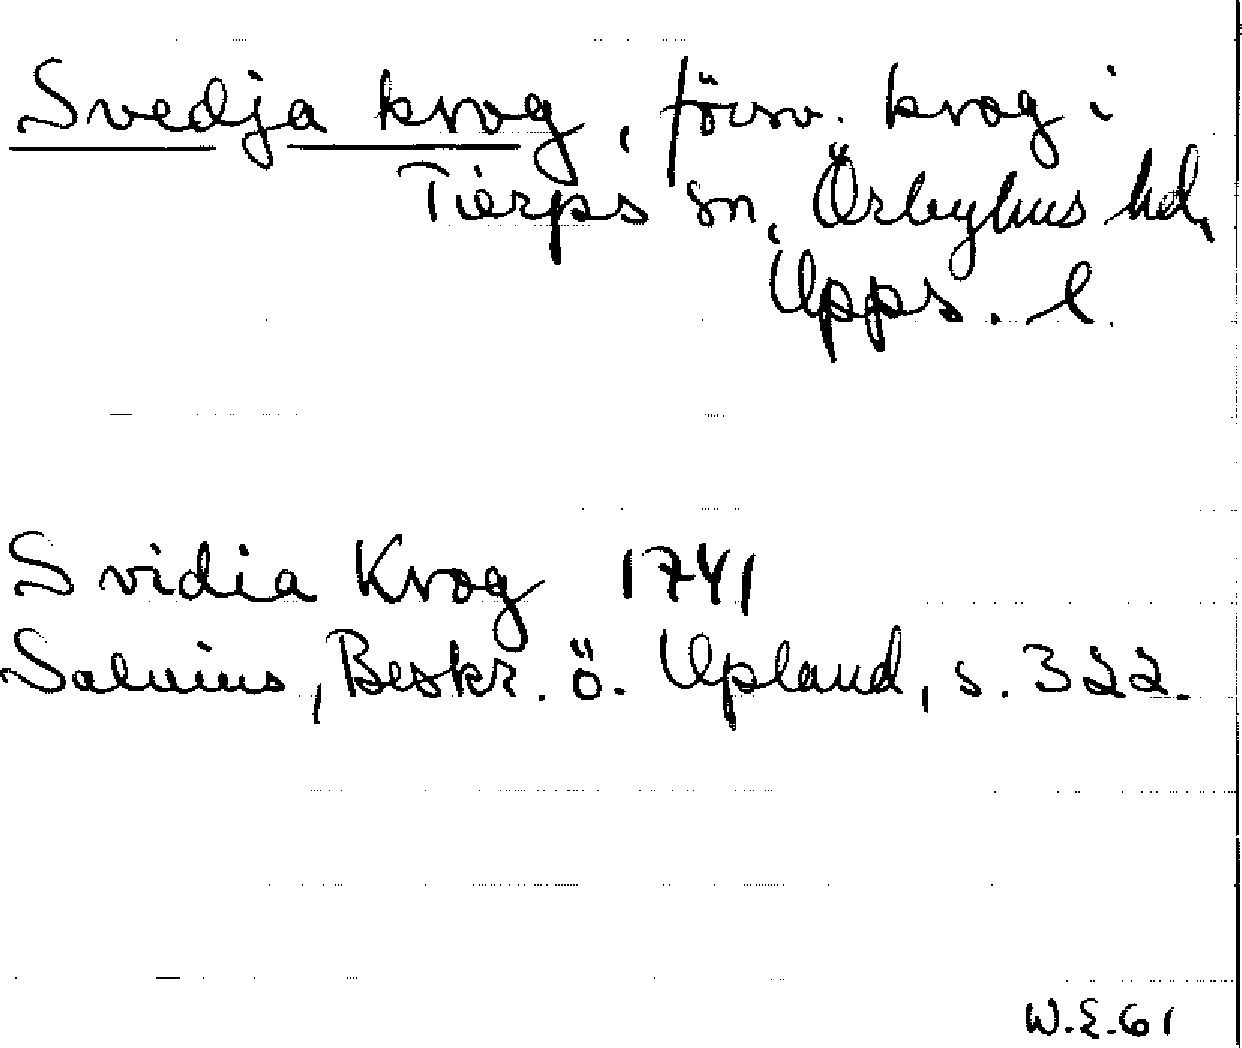 Svedja krog, försv. krog i
Tierps sn, Örbyhus hd,
Upps. l.
Svidia Krog 1741
Salvius, Beskr. ö. Upland, s. 322.
W.E.61